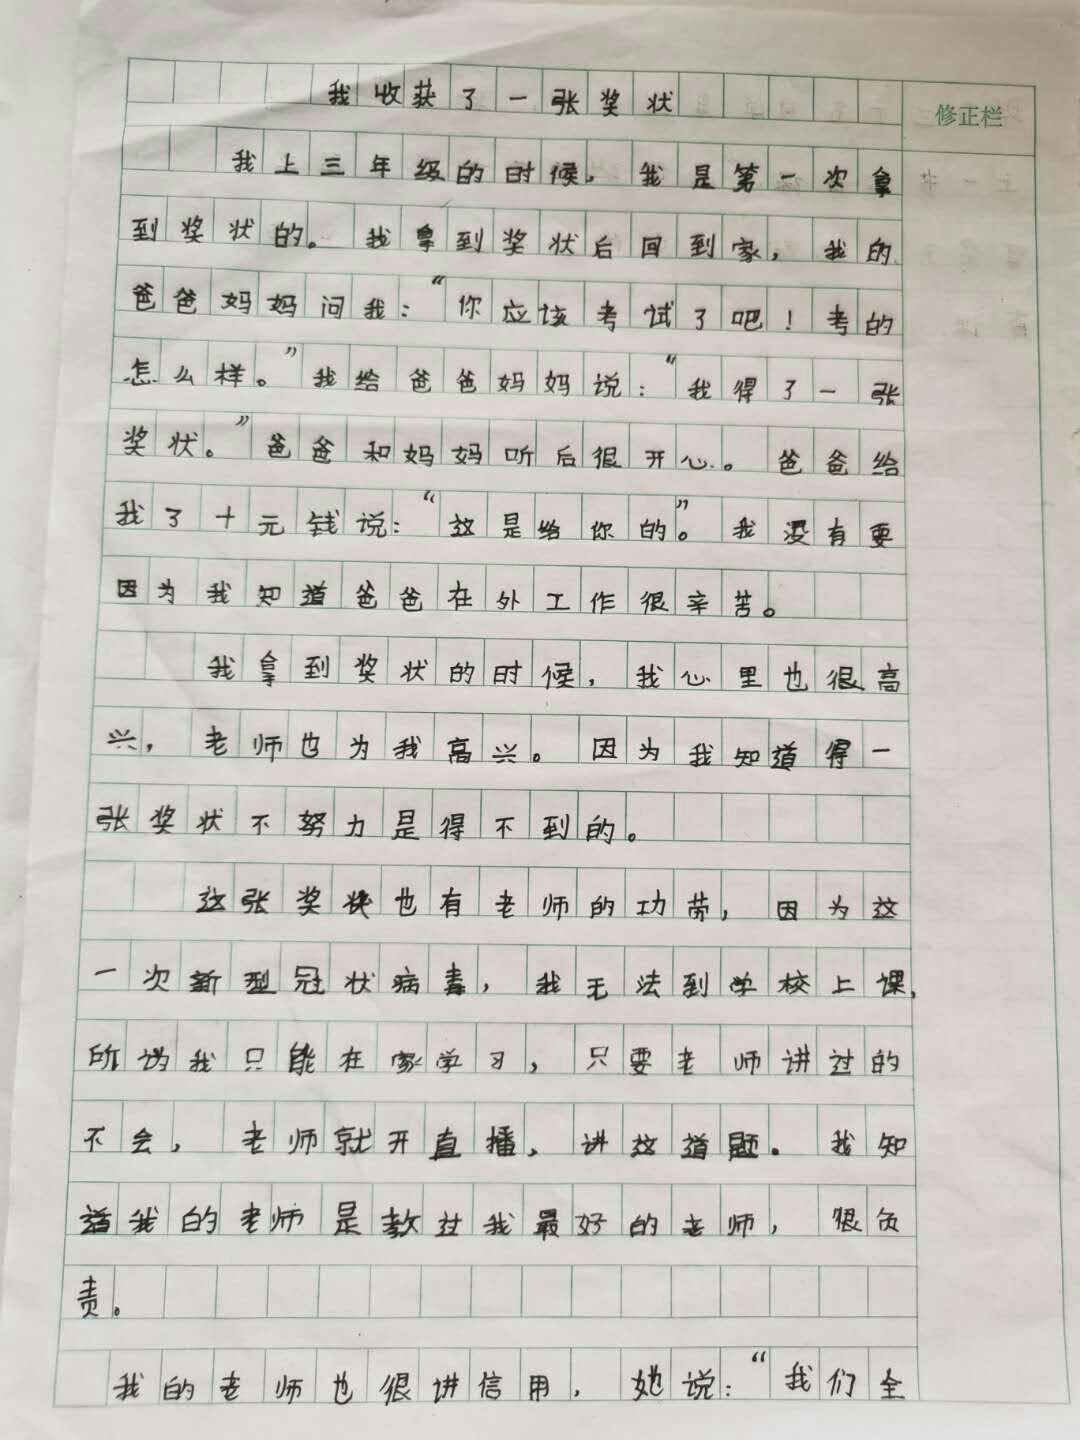 我收获了一张奖状
修正栏
我上三年级的时候，我是第一次拿
到奖状的。我拿到奖状后回到家，我的
爸爸妈妈问我：“你应该考试了吧！考的
怎么样。”我给爸爸妈妈说：“我得了一张
奖状。”爸爸和妈妈听后很开心。爸爸给
我了十元钱说：“这是给你的”。我没有要
因为我知道爸爸在外工作很辛苦。
我拿到奖状的时候，我心里也很高
兴，老师也为我高兴。因为我知道得一
张奖状不努力是得不到的。
这张奖状也有老师的功劳，因为这
一次新型冠状病毒，我无法到学校上课，
所为我只能在家学习，只要老师讲过的
不会，老师就开直播，讲这道题。我知
道我的老师是教过我最好的老师，很负
责。
我的老师也很讲信用，她说：“我们全